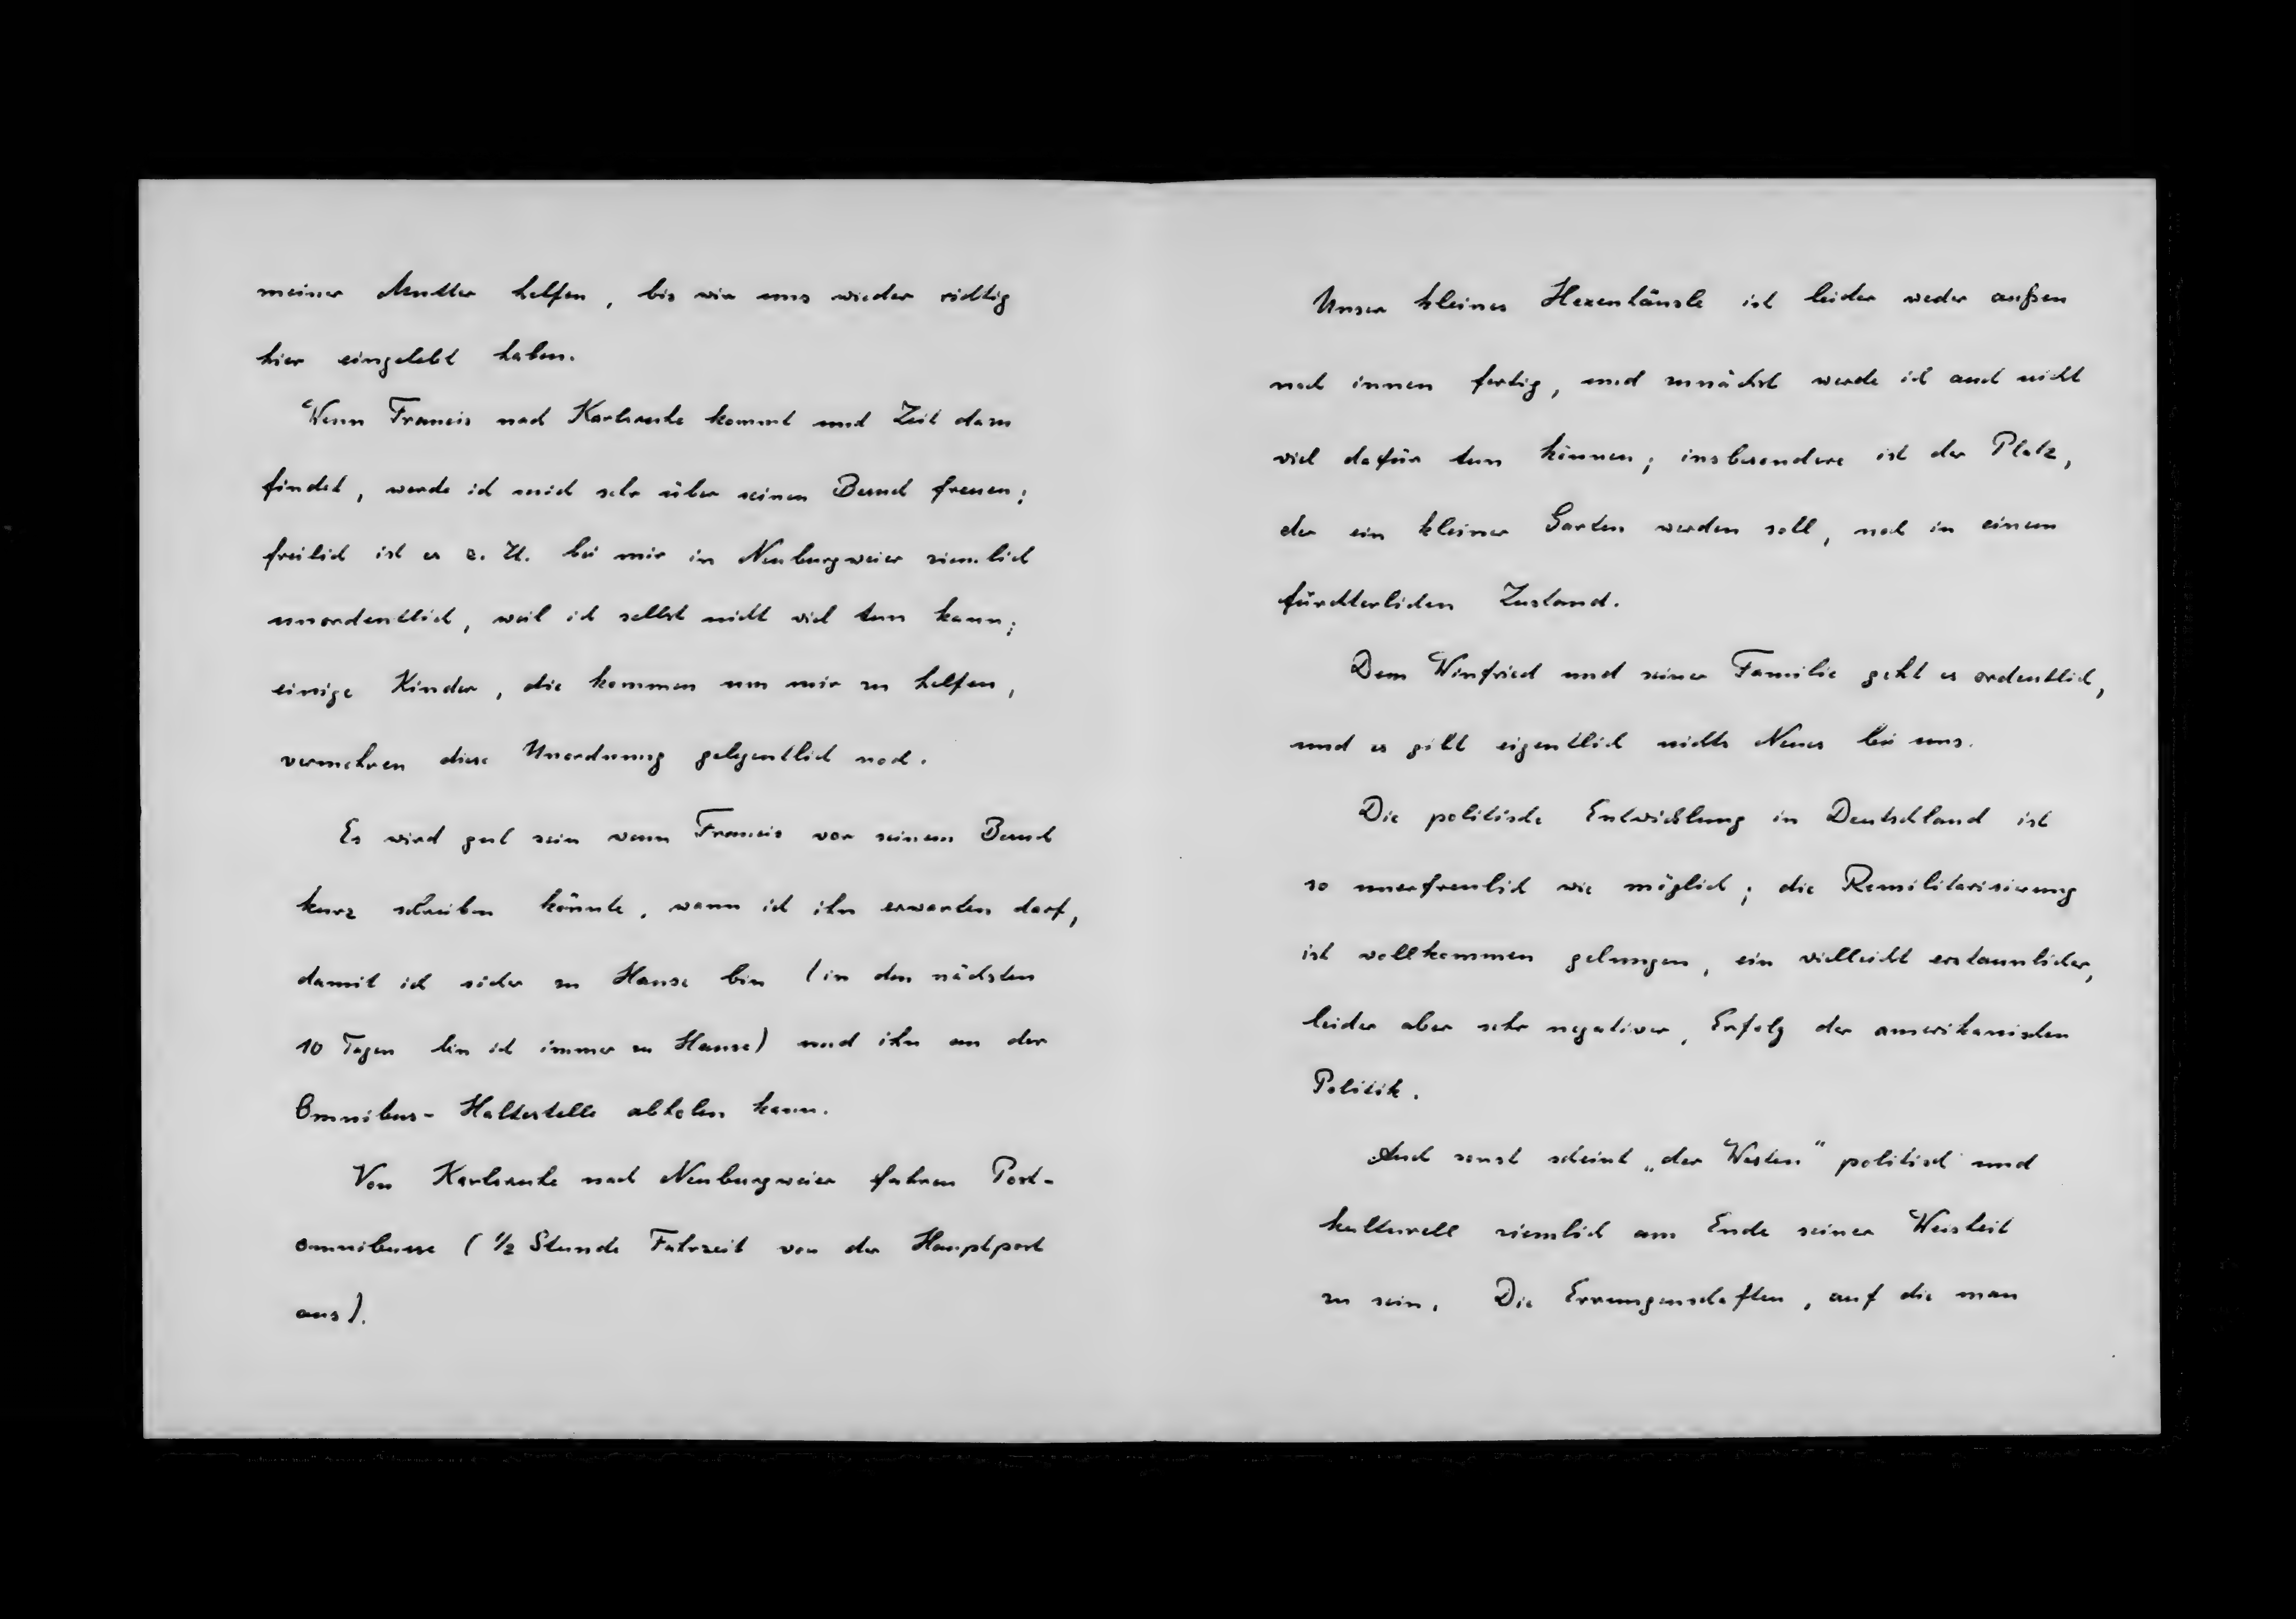 meiner Mutter helfen, bis wir uns wieder richtig
hier eingelebt haben.
Wenn Francis nach Karlsruhe kommt und Zeit dazu
findet, werde ich mich sehr über seinen Besuch freuen;
freilich ist es z. Zt. bei mir in Neuburgweier ziemlich
unordentlich, weil ich selbst nicht viel tun kann;
einige Kinder, die kommen um mir zu helfen,
vermehren diese Unordnung gelegentlich noch.
Es wird gut sein wenn Francis vor seinem Besuch
kurz schreiben könnte, wann ich ihn erwarten darf,
damit ich sicher zu Hause bin (in den nächsten
10 Tagen bin ich immer zu Hause) und ihn an der
Omnibus-Haltestelle abholen kann.
Von Karlsruhe nach Neuburgweier fahren Post-
omnibusse (1/2 Stunde Fahrzeit von der Hauptpost
aus).
Unser kleines Hexenhäusle ist leider weder außen
noch innen fertig, und zunächst werde ich auch nicht
viel dafür tun können; insbesondere ist der Platz,
der ein kleiner Garten werden soll, noch in einem
fürchterlichen Zustand.
Dem Winfried und seiner Familie geht es ordentlich,
und es gibt eigentlich nichts Neues bei uns.
Die politische Entwicklung in Deutschland ist
so unerfreulich wie möglich; die Remilitarisierung
ist vollkommen gelungen, ein vielleicht erstaunlicher,
leider aber sehr negativer, Erfolg der amerikanischen
Politik.
Auch sonst scheint „der Westen" politisch und
kulturell ziemlich am Ende seiner Weisheit
zu sein. Die Errungenschaften, auf die man